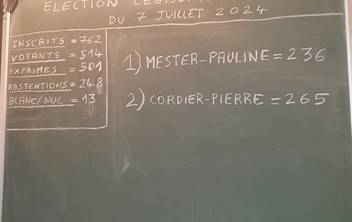 ELECTION LEGISL
DU 7 JUILLET 2024
INSCRITS = 762
VOTANTS = 514
EXPRIMES = 501
ABSTENTIONS = 248
BLANC/NUL = 13
1) MESTER-PAULINE = 236
2) CORDIER-PIERRE = 265